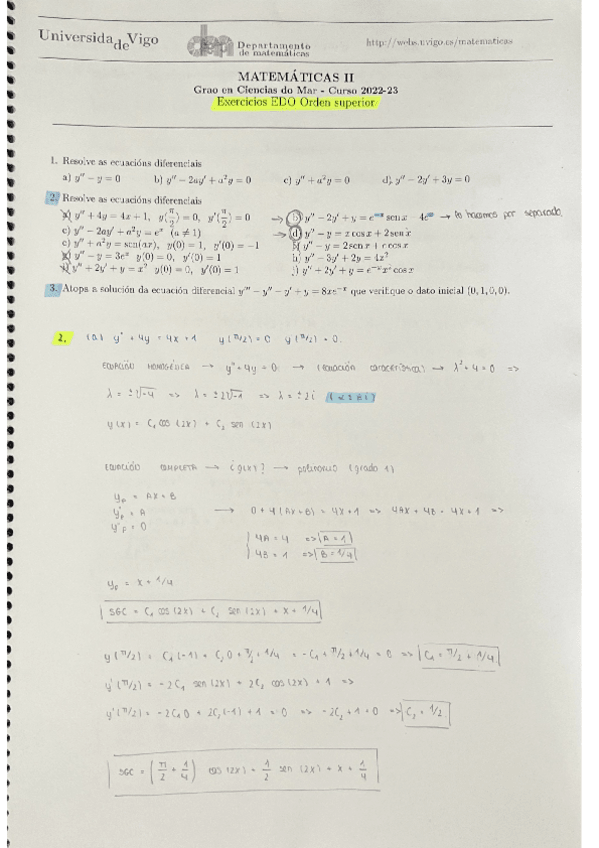 Universidade de Vigo
Departamento de matemáticas
http://webs.uvigo.es/matematicas
MATEMÁTICAS II
Grao en Ciencias do Mar - Curso 2022-23
Exercicios EDO Orden superior
1. Resolve as ecuacións diferenciais
a) y'' − y = 0 b) y'' − 2ay' + a²y = 0 c) y'' + a²y = 0 d) y'' − 2y' + 3y = 0
2. Resolve as ecuacións diferenciais
a) y'' + 4y = 4x + 1, y(π/2) = 0, y'(π/2) = 0 → b) y'' − 2y' + y = senx − 4e → lo hacemos por separado
c) y'' − 2ay' + a²y = eˣ (a ≠ 1) → d) y'' − y = x cos x + 2sen x
e) y'' + a²y = sen(ax), y(0) = 1, y'(0) = −1 y'' − y = 2sen x + cos x
y'' − y = 3eˣ y(0) = 0, y'(0) = 1 h) y'' − 3y' + 2y = 4x²
y'' + 2y' + y = x² y(0) = 0, y'(0) = 1 j) y'' + 2y' + y = e⁻ˣ cos x
3. Atopa a solución da ecuación diferencial y''' − y'' − y' + y = 8xe⁻ˣ que verifique o dato inicial (0, 1, 0, 0).
2. (a) y'' + 4y = 4x + 1 y(π/2) = 0 y'(π/2) = 0
ECUACIÓN HOMOGÉNEA → y'' + 4y = 0 → (ecuación característica) → λ² + 4 = 0 =>
λ = ±√-4 => λ = ±2√-1 => λ = ±2i (α ± βi)
y(x) = C₁ cos (2x) + C₂ sen (2x)
ECUACIÓN COMPLETA → ¿g(x)? → polinomio (grado 1)
yp = Ax + B
y'p = A → 0 + 4(Ax + B) = 4x + 1 => 4Ax + 4B = 4x + 1 =>
y''p = 0
4A = 4 => A = 1
4B = 1 => B = 1/4
yp = x + 1/4
SGC = C₁ cos (2x) + C₂ sen (2x) + x + 1/4
y(π/2) = C₁(-1) + C₂0 + π/2 + 1/4 = -C₁ + π/2 + 1/4 = 0 => C₁ = π/2 + 1/4
y'(π/2) = -2C₁ sen (2x) + 2C₂ cos (2x) + 1 =>
y'(π/2) = -2C₁0 + 2C₂(-1) + 1 = 0 => -2C₂ + 1 = 0 => C₂ = 1/2
SGC = (π/2 + 1/4) cos (2x) + 1/2 sen (2x) + x + 1/4